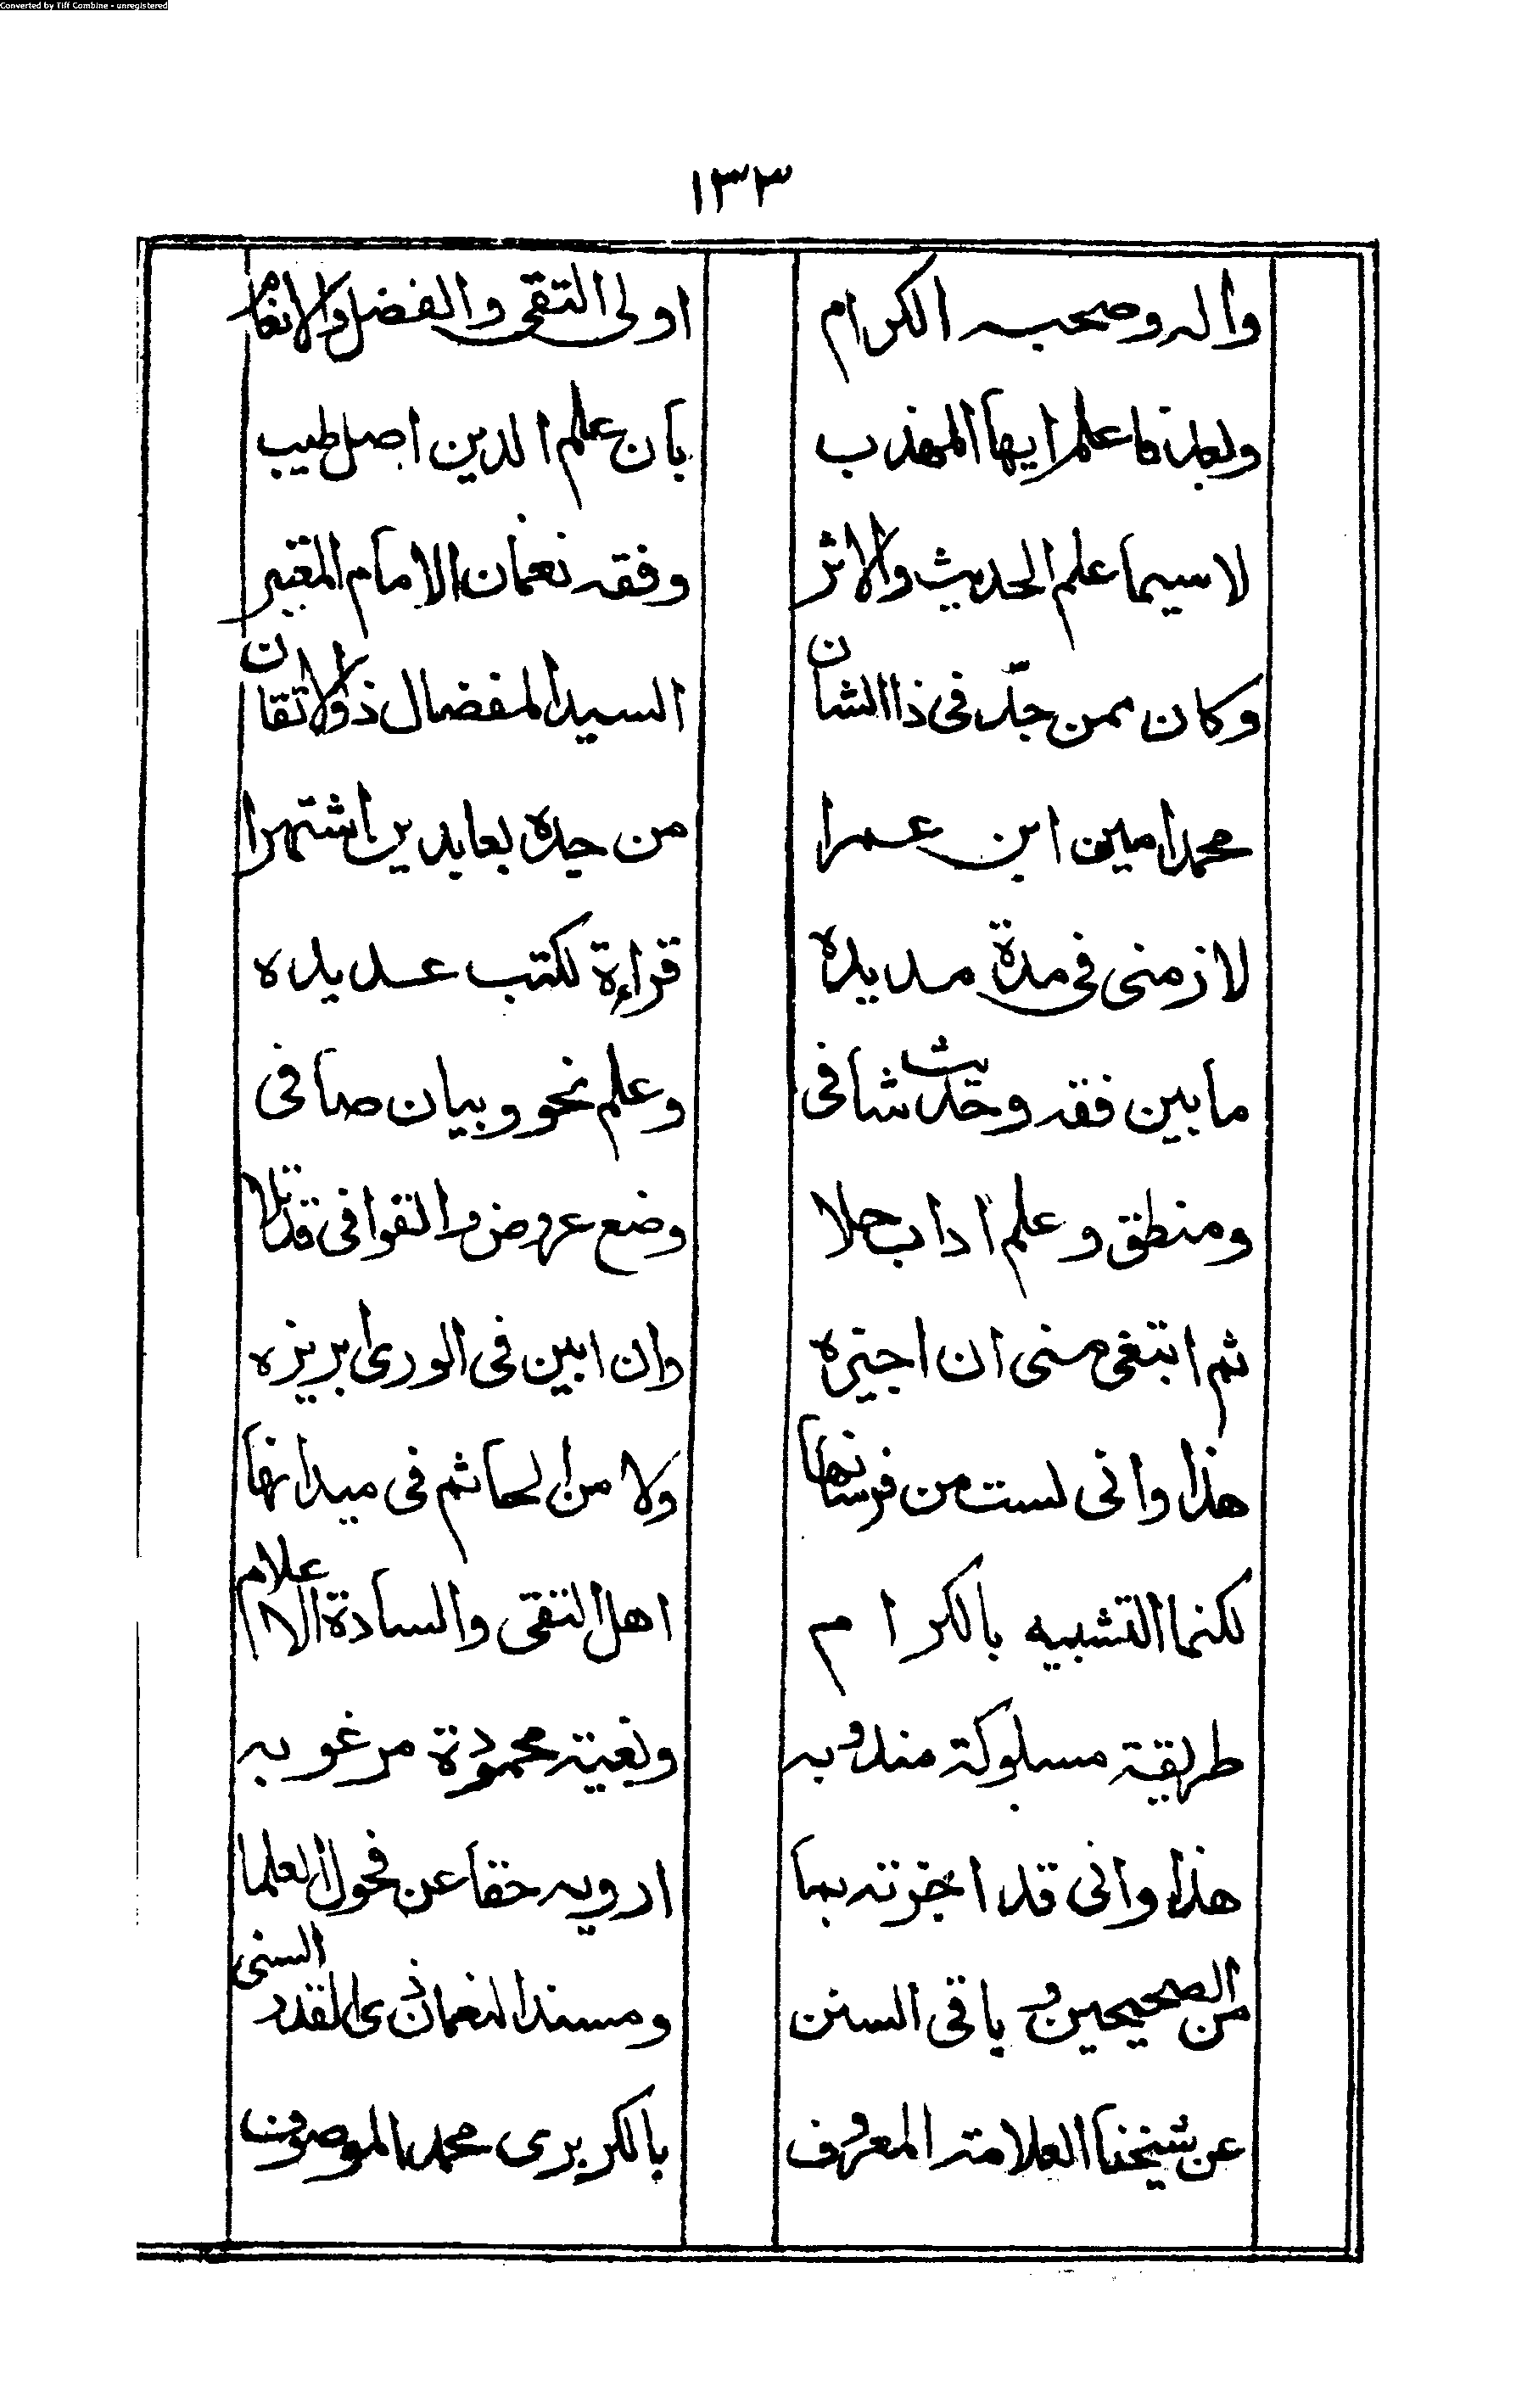 Converted by Tiff Combine - unregistered
١٣٣
واله وصحبه الكرام اولى التقى والفضل والانعام
وبعد فاعلم ايها المهذب بان علم الدين اصل طيب
لا سيما علم الحديث والاثر وفقه نعمان الامام المعتبر
وكان ممن جدّ فى ذا الشان السيد المفضال ذو الاتقان
محمد امين ابن عمرا من جده بعابدين اشتهرا
لازمنى فى مدة مديده قراءة لكتب عديده
ما بين فقه وحديث شافى وعلم نحو وبيان صافى
ومنطق وعلم اداب حلا وضع عروض والقوافى قد تلا
ثم ابتغى منى ان اجيزه وان ابين فى الورى ابريزه
هذا وانى لست من فرسانها ولا من الحاثم فى ميدانها
لكنما التشبيه بالكرام اهل التقى والسادة الاعلام
طريقة مسلوكة مندوبه وبغية محمودة مرغوبه
هذا وانى قد اجزته بما ارويه حقا عن فحول العلما
من الصحيحين وباقى السنن ومسند النعمان ذى القدر السنى
عن شيخنا العلامة المعروف بالكزبرى محمد الموصوف